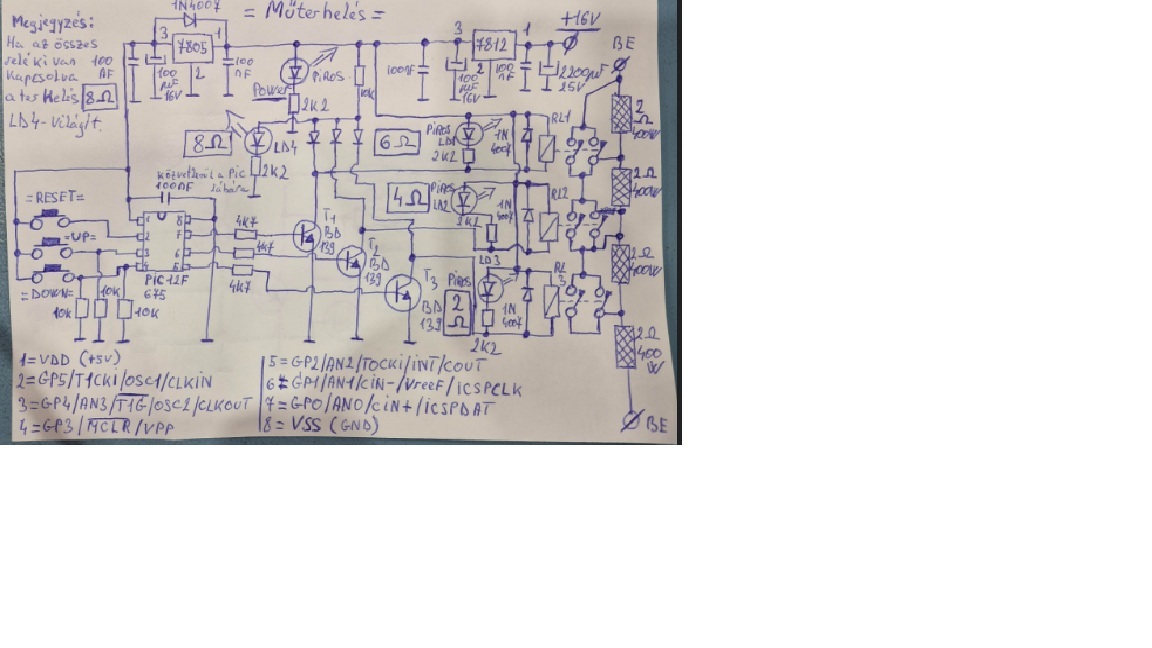 = Műterhelés =
Megjegyzés:
Ha az összes
relé ki van
kapcsolva
a terhelés 8Ω
LD4-világít.
1N4007
3 7805 1
2
100 nF
100 µF 16V
100 nF
Power
PIROS
2K2
10K
100nF
3 7812 1
2
100 µF 16V
100 nF
+16V
2200µF
25V
BE
8Ω
LD4
2K2
6Ω
PIROS
LD1
2K2
1N
4007
RL1
2
Ω
400W
közvetlenül a Pic
lábára
100nF
4Ω
PIROS
LD2
2K2
1N
4007
RL2
2Ω
400W
=RESET=
=UP=
=DOWN=
1 8
2 7
3 6
4 5
PIC 12F
675
4K7
4K7
4K7
T1
BD
139
T2
BD
139
T3
BD
139
10K
10K
10K
LD3
PIROS
2
Ω
2K2
1N
4007
RL
3
2Ω
400W
2Ω
400
W
BE
1=VDD (+5V)
2=GP5/T1CKI/OSC1/CLKIN
3=GP4/AN3/T1G/OSC2/CLKOUT
4=GP3/MCLR/VPP
5=GP2/AN2/TOCKI/INT/COUT
6=GP1/AN1/CIN-/VreeF/ICSPCLK
7=GPO/ANO/CIN+/ICSPDAT
8=VSS (GND)